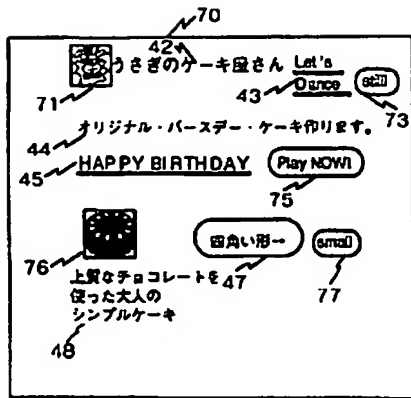 70
42
うさぎのケーキ屋さん Let's
Dance still
71 43 73
44 オリジナル・バースデー・ケーキ作ります。
45 HAPPY BIRTHDAY Play NOW!
75
四角い形→ small
76 47 77
上質なチョコレートを
使った大人の
シンプルケーキ
48